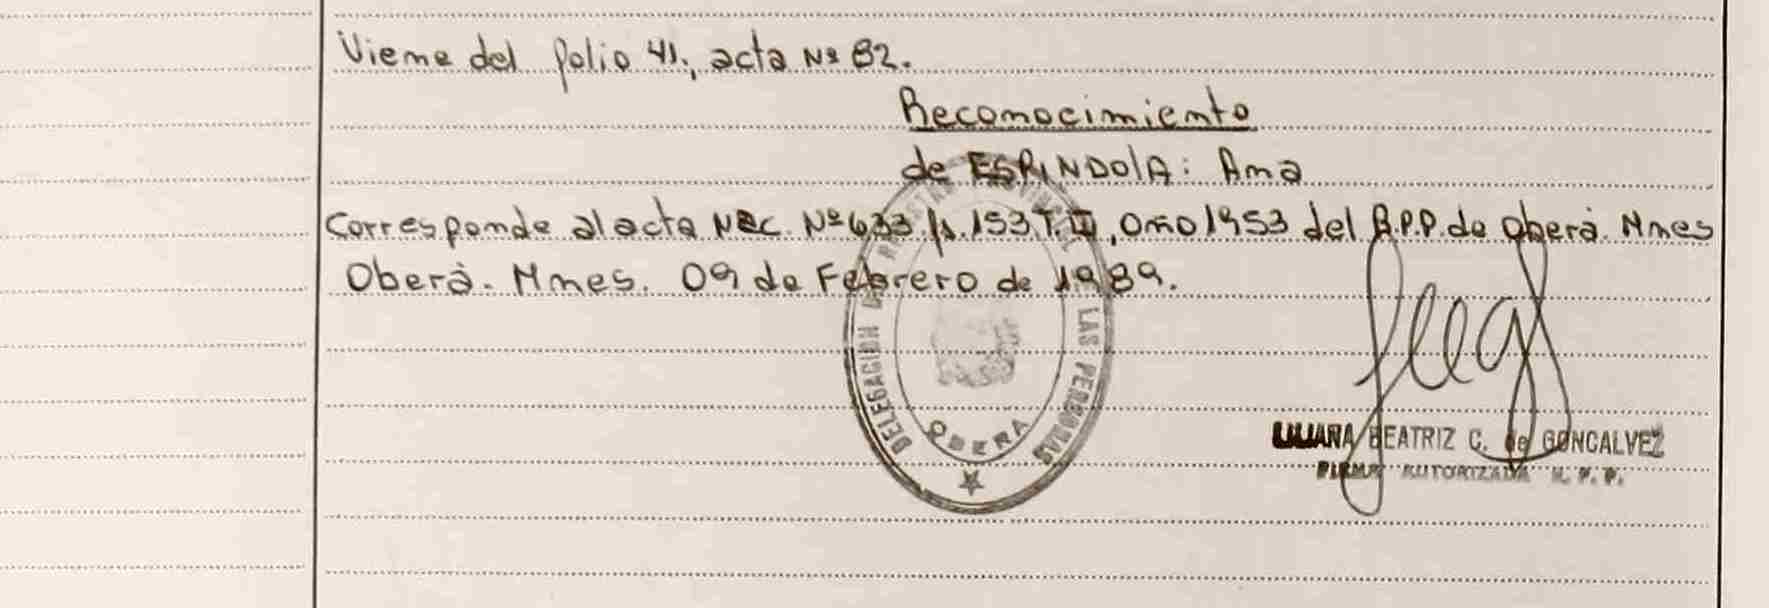 Viene del folio 41, acta Nº 82.
Reconocimiento
de ESPINDOLA: Ana
Corresponde al acta Nac. Nº 633. fs. 153 T. II, año 1953 del R.P.P. de Oberá. Mnes
Oberá. Mnes. 09 de Febrero de 1989.
DELEGACION LAS PERSONAS
OBERA
LILIANA BEATRIZ C. de GONCALVEZ
FIRMA AUTORIZADA R. P. P.